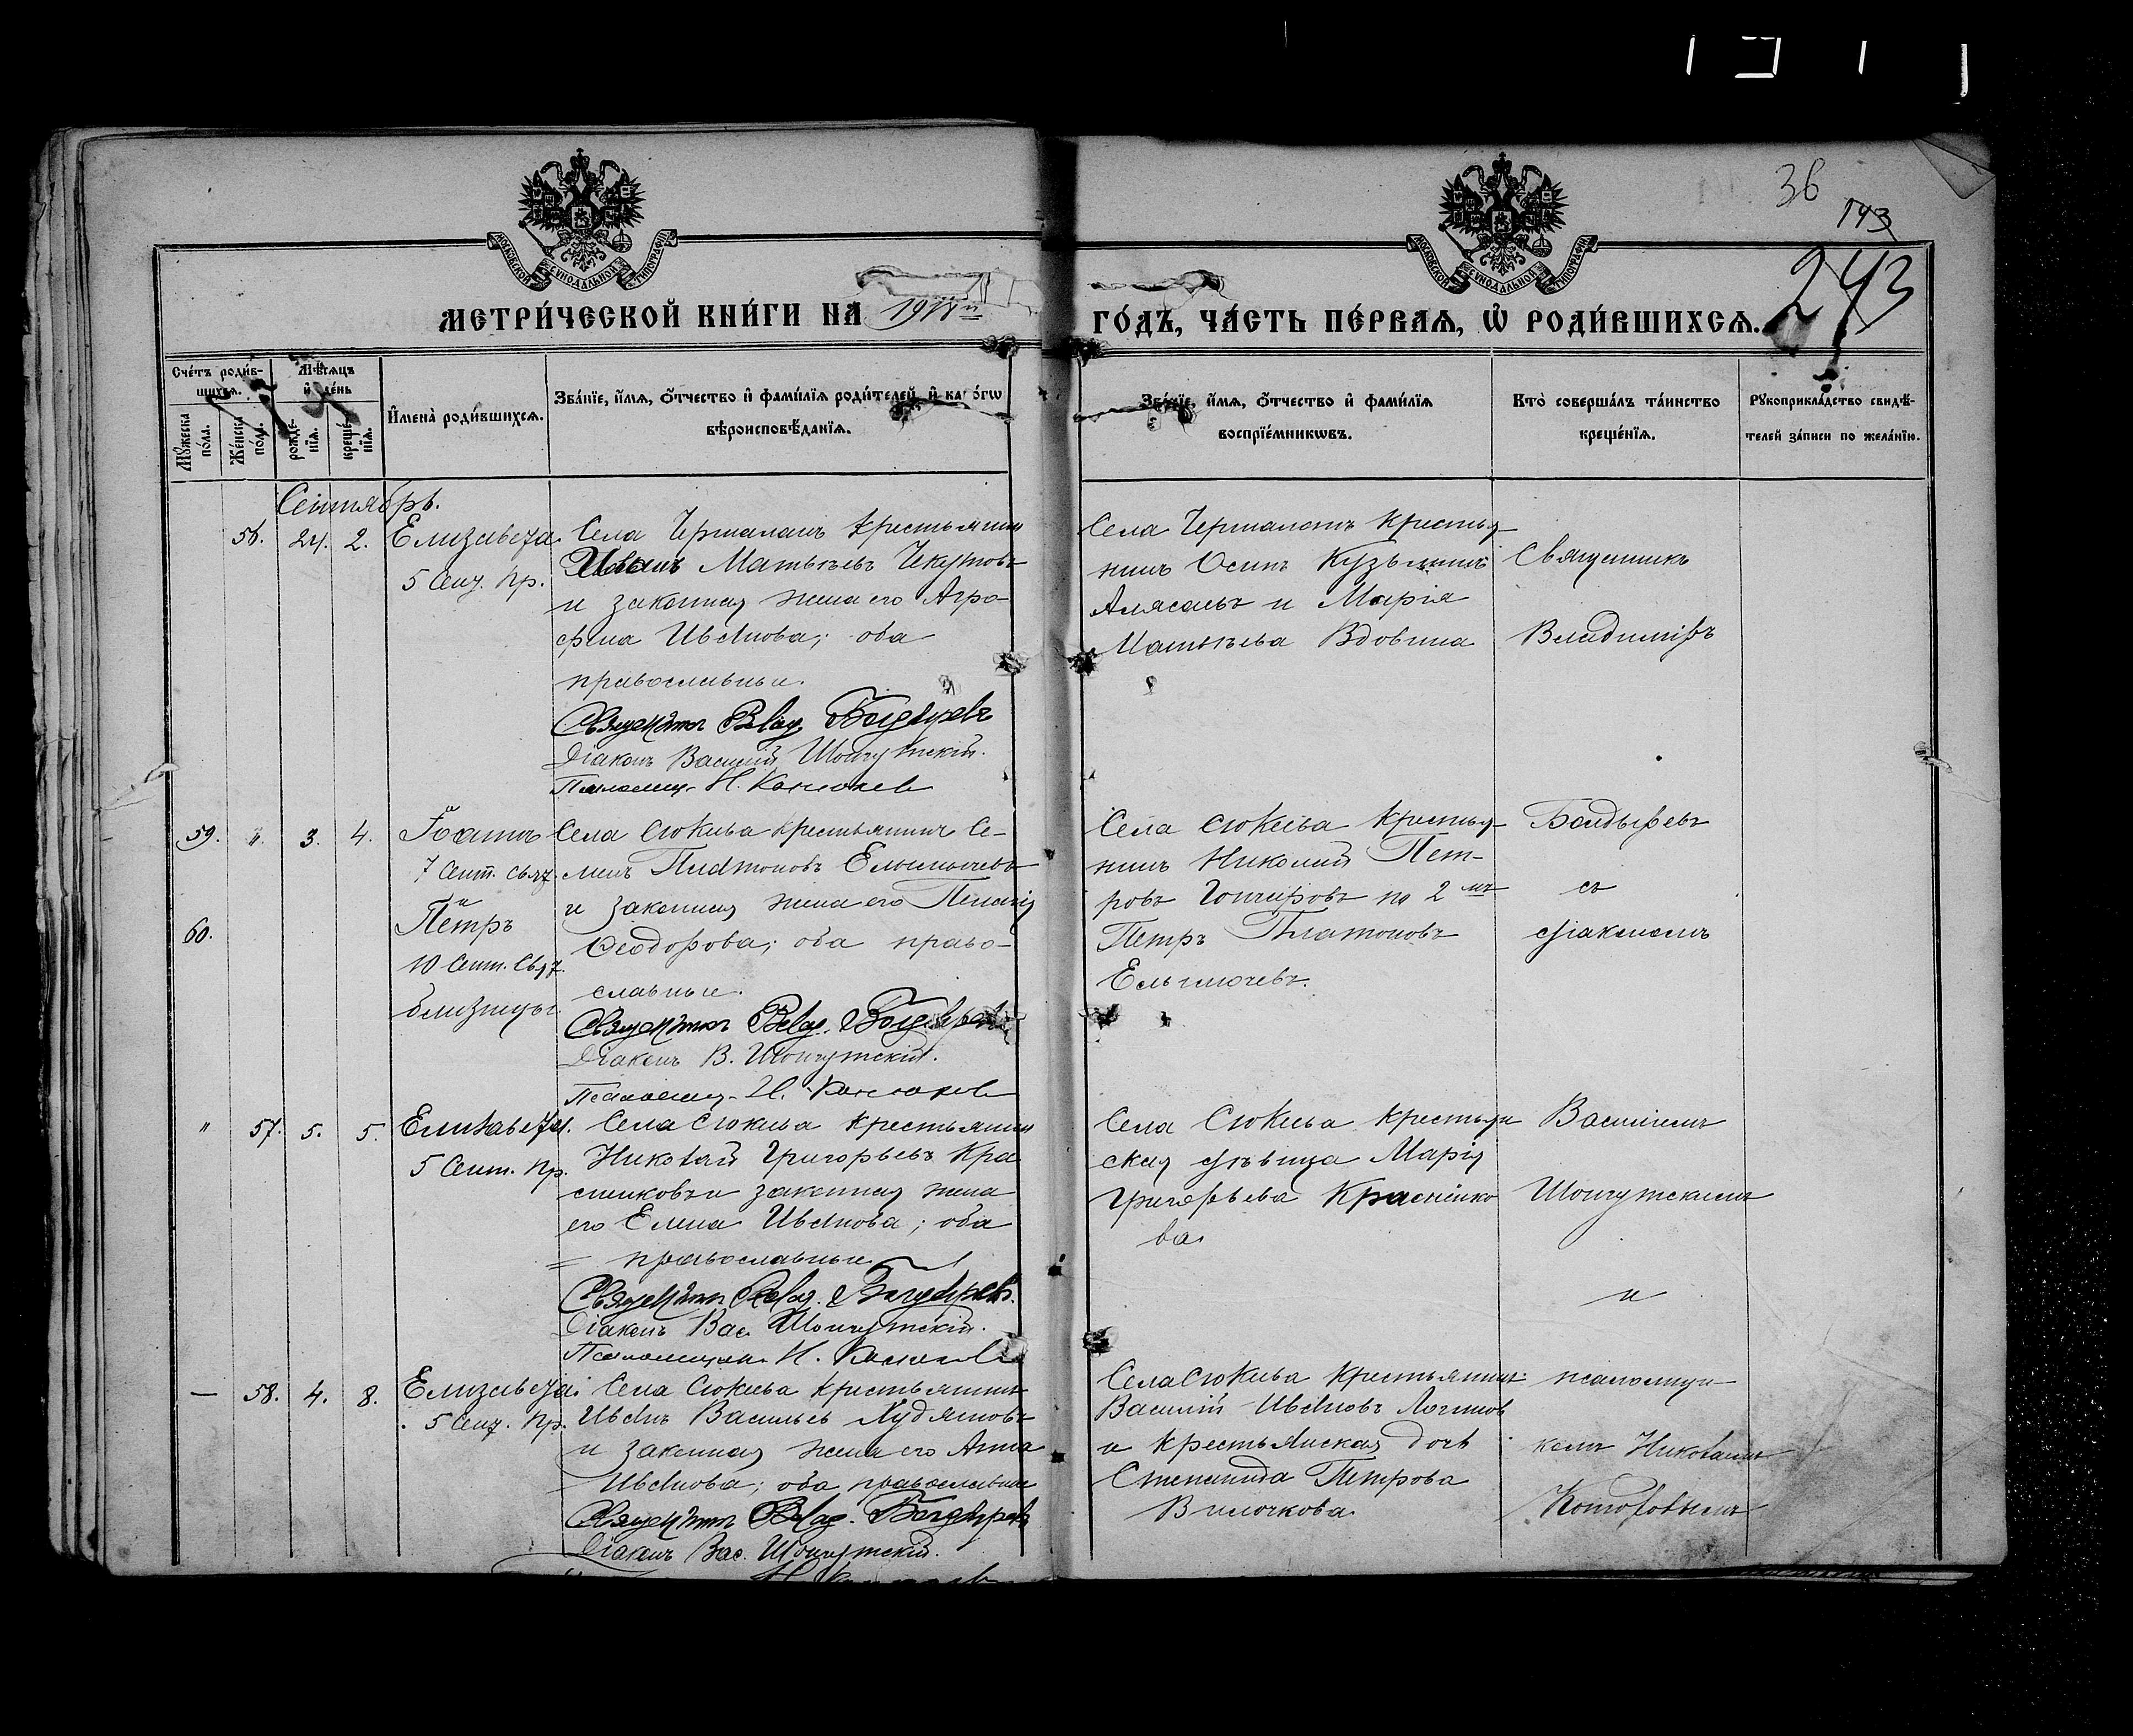 36
143
243
МОСКОВСКОЙ СѴНОДАЛЬНОЙ ТИПОГРАФІИ
МОСКОВСКОЙ СѴНОДАЛЬНОЙ ТИПОГРАФІИ
МЕТРИ́ЧЕСКОЙ КНИ́ГИ НА
ГО́ДЪ, ЧА́СТЬ ПЕ́РВАѦ, Ѡ҆ РОДИ́ВШИХСѦ.
Сче́тъ роди́в-
шихсѧ.
Мѣ́сѧцъ
и҆ де́нь
Мꙋ́жеска
по́ла.
Же́нска
по́ла.
рожде́-
нїѧ.
креще́-
нїѧ.
И҆мена̀ роди́вшихсѧ.
Зва́нїе, и҆́мѧ, ѻ҆́тчество и҆ фами́лїѧ роди́телей, и҆ како́гѡ
вѣроисповѣ́данїѧ.
Зва́нїе, и҆́мѧ, ѻ҆́тчество и҆ фами́лїѧ
воспрїе́мникѡвъ.
Кто̀ соверша́лъ та́инство
креще́нїѧ.
Рꙋкоприкла́дство свидѣ́-
телей за́писи по жела́нїю.
Сентябрь.
56. 24. 2. Елизавета
5 Сент. пр.
Села Чермалакъ крестьянин
Иванъ Матвѣевъ
и законная жена его Агро-
фена Иванова; оба
православные.
Священникъ Влад. Болдыревъ
Діаконъ Василій Шонгутскій.
Псаломщ. Н.
Села крестья-
нинъ Осипъ Кузьминъ
и Марія
Матвѣева Вдовина
Священникъ
Владиміръ
59. " 3. 4. Іоаннъ
7 Сент. свят.
60. и
Петръ
10 Сент. Свят.
близнецы.
Села Сюкѣева крестьянинъ Се-
менъ Платоновъ
и законная жена его Пелагія
Ѳеодорова; оба право-
славные.
Священникъ Влад. Болдыревъ
Діаконъ В. Шонгутскій.
Псаломщ. Н.
Села Сюкѣева крестья-
нинъ Николай Пет-
ровъ Гончаровъ по 2мъ
Петръ Платоновъ
Болдыревъ
съ
діакономъ
" 57. 5. 5. Елизавета.
5 Сент. пр.
Села Сюкѣева крестьянин
Николай Григорьевъ Кра
сненковъ и законная жена
его Елена Иванова; оба
православные.
Священникъ Влад. Болдыревъ.
Діаконъ Вас. Шонгутскій.
Псаломщик Н.
Села Сюкѣева крестьян
ская дѣвица Марія
Григорьева Красненко
ва.
Василіемъ
Шонгутскимъ
и
— 58. 4. 8. Елизавета.
5 Сент. пр.
Села Сюкѣева крестьянинъ
Иванъ Васильевъ Худяковъ
и законная жена его Анна
Иванова; оба православные
Священникъ Влад. Болдыревъ
Діаконъ Вас. Шонгутскій.
Села Сюкѣева крестьянинъ
Василій Ивановъ Логинов
и крестьянская дочь
Степанида Петрова
Вилочкова.
псаломщи-
комъ Николаемъ